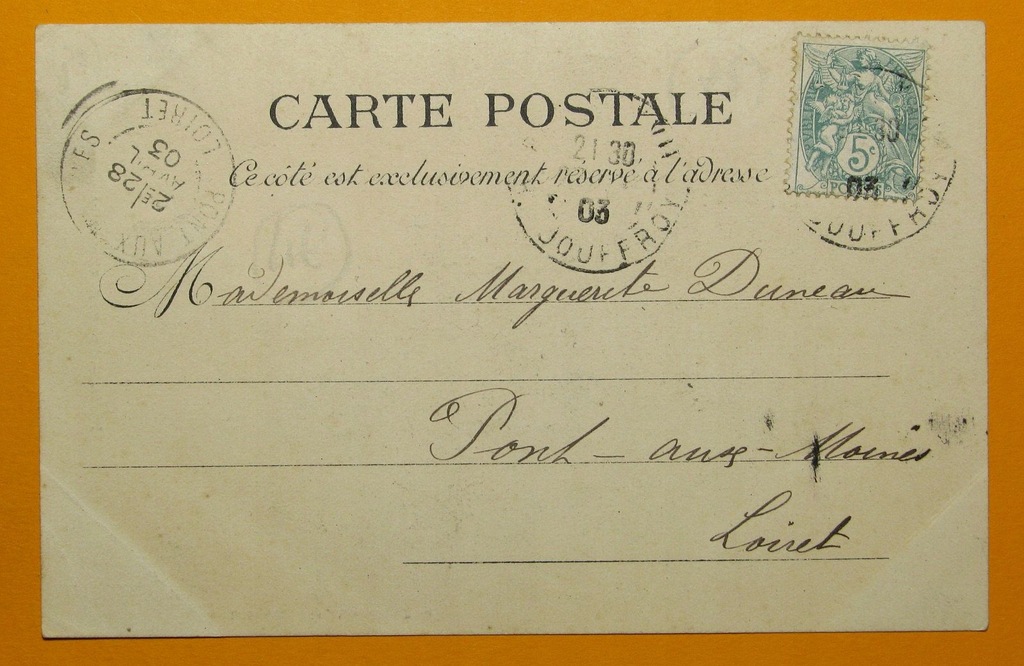 CARTE POSTALE
Ce côté est exclusivement réservé à l'adresse
5c
POSTES
21 30
03
JOUFFROY
30
03
JOUFFROY
PONT AUX MOINES
LOIRET
2E 28
AVRIL
03
Mademoiselle Marguerite Duneau
Pont-aux-Moines
Loiret